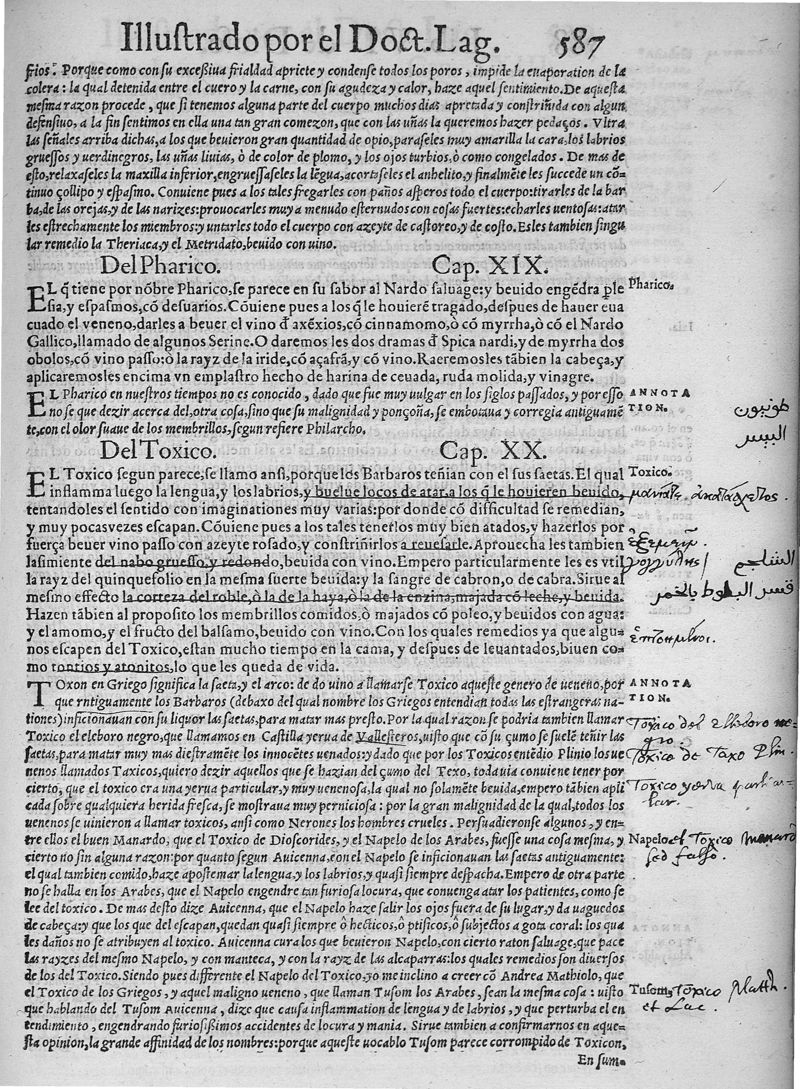 Illustrado por el Doct. Lag. 587
frios. Porque como con su excessiua frialdad apriete y condense todos los poros, impide la euaporation de la
colera: la qual detenida entre el cuero y la carne, con su agudeza y calor, haze aquel sentimiento. De aquesta
mesma razon procede, que si tenemos alguna parte del cuerpo muchos dias apretada y constriñida con algun
defensiuo, a la fin sentimos en ella una tan gran comezon, que con las uñas la queremos hazer pedaços. Vltra
las señales arriba dichas, a los que beuieron gran quantidad de opio, paraseles muy amarilla la cara, los labrios
gruessos y uerdinegros, las uñas liuias, ò de color de plomo, y los ojos turbios, ò como congelados. De mas de
esto, relaxaseles la maxilla inferior, engruessaseles la lẽgua, acortaseles el anhelito, y finalmẽte les succede un cõ-
tinuo çollipo y espasmo. Conuiene pues a los tales fregarles con paños asperos todo el cuerpo: tirarles de la bar
ba, de las orejas, y de las narizes: prouocarles muy a menudo esternudos con cosas fuertes: echarles uentosas: atar
les estrechamente los miembros: y untarles todo el cuerpo con azeyte de castoreo, y de costo. Es les tambien singu
lar remedio la Theriaca, y el Metridato, beuido con uino.
Del Pharico. Cap. XIX.
EL q̃ tiene por nõbre Pharico, se parece en su sabor al Nardo saluage: y beuido engẽdra ꝑle
sia, y espasmos, cõ desuarios. Cõuiene pues a los q̃ le houierẽ tragado, despues de hauer eua
cuado el veneno, darles a beuer el vino d̃ axẽxios, cõ cinnamomo, ò cõ myrrha, ò cõ el Nardo
Gallico, llamado de algunos Serine. O daremos les dos dramas d̃ Spica nardi, y de myrrha dos
obolos, cõ vino passo: ò la rayz de la iride, cõ açafrã, y cõ vino. Raeremosles tãbien la cabeça, y
aplicaremosles encima vn emplastro hecho de harina de ceuada, ruda molida, y vinagre.
Pharico.
EL Pharico en nuestros tiempos no es conocido, dado que fue muy uulgar en los siglos passados, y por esso
no se que dezir acerca del, otra cosa, sino que su malignidad y ponçoña, se embotaua y corregia antiguamẽ
te, con el olor suaue de los membrillos, segun refiere Philarcho.
ANNOTA
TION.
Del Toxico. Cap. XX.
EL Toxico segun parece, se llamo ansi, porque los Barbaros teñian con el sus saetas. El qual
inflamma luego la lengua, y los labrios, y buelue locos de atar, a los q̃ le houieren beuido,
tentandoles el sentido con imaginationes muy varias: por donde cõ difficultad se remedian,
y muy pocas vezes escapan. Cõuiene pues a los tales tenerlos muy bien atados, y hazerlos por
fuerça beuer vino passo con azeyte rosado, y constriñirlos a reuesarle. Aprouecha les tambien
la simiente del nabo gruesso, y redondo, beuida con vino. Empero particularmente les es vtil
la rayz del quinquefolio en la mesma suerte beuida: y la sangre de cabron, o de cabra. Sirue al
mesmo effecto la corteza del roble, ò la de la haya, ò la de la enzina, majada cõ leche, y beuida.
Hazen tãbien al proposito los membrillos comidos, ò majados cõ poleo, y beuidos con agua:
y el amomo, y el fructo del balsamo, beuido con vino. Con los quales remedios ya que algu-
nos escapen del Toxico, estan mucho tiempo en la cama, y despues de leuantados, biuen co-
mo tontios y atonitos, lo que les queda de vida.
Toxico.
الشلجم
قشر البلوط بالخمر
TOxon en Griego significa la saeta, y el arco: de do uino a llamarse Toxico aqueste genero de ueneno, por
que rntiguamente los Barbaros (debaxo del qual nombre los Griegos entendian todas las estrangeras na-
tiones) inficionauan con su liquor las saetas, para matar mas presto. Por la qual razon se podria tambien llamar
Toxico el eleboro negro, que llamamos en Castilla yerua de Vallesteros, uisto que cõ su çumo se suelẽ teñir las
saetas, para matar muy mas diestramẽte los innocẽtes uenados: y dado que por los Toxicos entẽdio Plinio los ue
nenos llamados Taxicos, quiero dezir aquellos que se hazian del çumo del Texo, todauia conuiene tener por
cierto, que el toxico era una yerua particular, y muy uenenosa, la qual no solamẽte beuida, empero tãbien apli
cada sobre qualquiera herida fresca, se mostraua muy perniciosa: por la gran malignidad de la qual, todos los
uenenos se uinieron a llamar toxicos, ansi como Nerones los hombres crueles. Persuadieronse algunos, y en-
tre ellos el buen Manardo, que el Toxico de Dioscorides, y el Napelo de los Arabes, fuesse una cosa mesma, y
cierto no sin alguna razon: por quanto segun Auicenna, con el Napelo se inficionauan las saetas antiguamente:
el qual tambien comido, haze apostemar la lengua, y los labrios, y quasi siempre despacha. Empero de otra parte
no se halla en los Arabes, que el Napelo engendre tan furiosa locura, que conuenga atar los patientes, como se
lee del toxico. De mas desto dize Auicenna, que el Napelo haze salir los ojos fuera de su lugar, y da uaguedos
de cabeça: y que los que del escapan, quedan quasi siempre ò hecticos, ò ptisicos, ò subjectos a gota coral: los qua
les daños no se atribuyen al toxico. Auicenna cura los que beuieron Napelo, con cierto raton saluage, que pace
las rayzes del mesmo Napelo, y con manteca, y con la rayz de las alcaparras: los quales remedios son diuersos
de los del Toxico. Siendo pues differente el Napelo del Toxico, yo me inclino a creer cõ Andrea Mathiolo, que
el Toxico de los Griegos, y aquel maligno ueneno, que llaman Tusom los Arabes, sean la mesma cosa: uisto
que hablando del Tusom Auicenna, dize que causa inflammation de lengua y de labrios, y que perturba el en
tendimiento, engendrando furiosissimos accidentes de locura y mania. Sirue tambien a confirmarnos en aque-
sta opinion, la grande affinidad de los nombres: porque aqueste uocablo Tusom parece corrompido de Toxicon,
En sum-
ANNOTA
TION.
Toxico del elleboro ne-
gro.
Toxico de Taxo Plin.
Toxico yerua particu-
lar.
Napelo et Toxico Manard
sed falso.
Tusom, Toxico Matth.
et Lac.